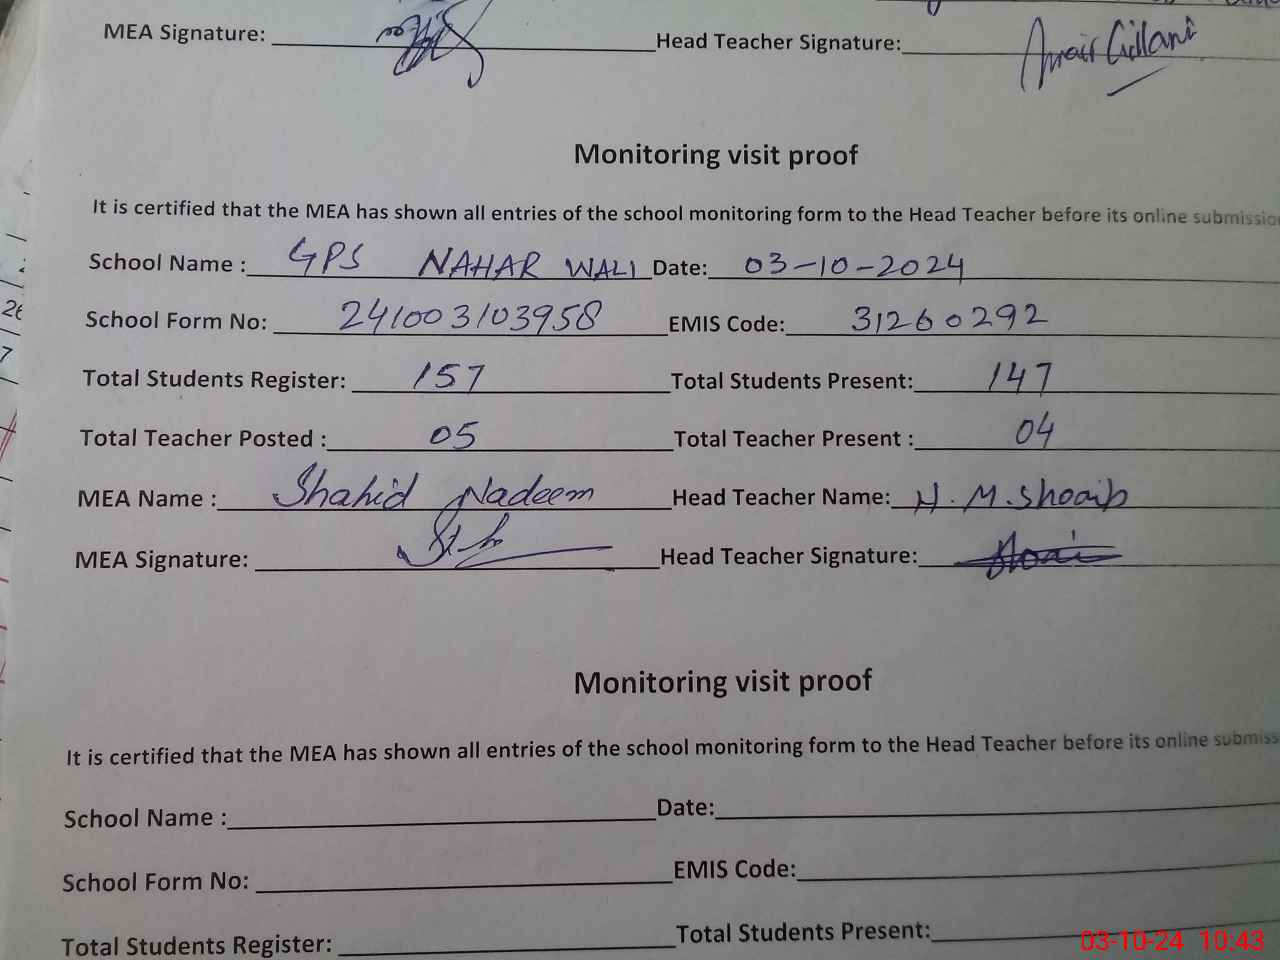 MEA Signature: Head Teacher Signature: Amair Gillani
Monitoring visit proof
It is certified that the MEA has shown all entries of the school monitoring form to the Head Teacher before its online submission
School Name : GPS NAHAR WALI Date: 03-10-2024
School Form No: 241003103958 EMIS Code: 31260292
Total Students Register: 157 Total Students Present: 147
Total Teacher Posted : 05 Total Teacher Present : 04
MEA Name : Shahid Nadeem Head Teacher Name: H. M. Shoaib
MEA Signature: Head Teacher Signature:
Monitoring visit proof
It is certified that the MEA has shown all entries of the school monitoring form to the Head Teacher before its online submiss
School Name : Date:
School Form No: EMIS Code:
Total Students Register: Total Students Present:
03-10-24 10:43